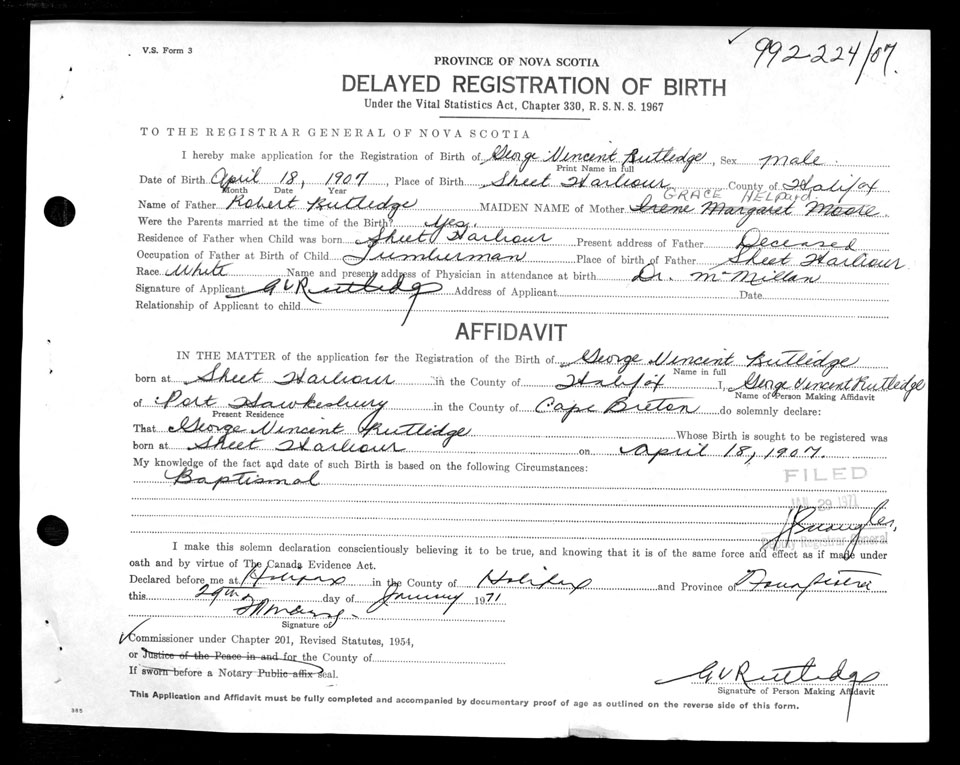 V.S. Form 3
992-224/07.
PROVINCE OF NOVA SCOTIA
DELAYED REGISTRATION OF BIRTH
Under the Vital Statistics Act, Chapter 330, R.S.N.S. 1967
TO THE REGISTRAR GENERAL OF NOVA SCOTIA
I hereby make application for the Registration of Birth of George Vincent Rutledge, Sex Male.
Print Name in full
Date of Birth April 18, 1907, Place of Birth Sheet Harbour County of Halifax
Month Date Year GRACE HELPard.
Name of Father Robert Rutledge MAIDEN NAME of Mother Irene Margaret Moore.
Were the Parents married at the time of the Birth? Yes.
Residence of Father when Child was born Sheet Harbour Present address of Father Deceased
Occupation of Father at Birth of Child Lumberman Place of birth of Father Sheet Harbour
Race White Name and present address of Physician in attendance at birth Dr. McMillan
Signature of Applicant G V Rutledge Address of Applicant Date
Relationship of Applicant to child
AFFIDAVIT
IN THE MATTER of the application for the Registration of the Birth of George Vincent Rutledge
Name in full
born at Sheet Harbour in the County of Halifax I, George Vincent Rutledge
Name of Person Making Affidavit
of Port Hawkesbury in the County of Cape Breton do solemnly declare:
Present Residence
That George Vincent Rutledge Whose Birth is sought to be registered was
born at Sheet Harbour on April 18, 1907.
My knowledge of the fact and date of such Birth is based on the following Circumstances:
Baptismal
FILED
JAN 29 1971
Deputy Registrar General
I make this solemn declaration conscientiously believing it to be true, and knowing that it is of the same force and effect as if made under
oath and by virtue of The Canada Evidence Act.
Declared before me at Halifax in the County of Halifax and Province of Nova Scotia
this 29th day of January 1971
Signature of
Commissioner under Chapter 201, Revised Statutes, 1954,
or Justice of the Peace in and for the County of
If sworn before a Notary Public affix seal.
G V Rutledge
Signature of Person Making Affidavit
This Application and Affidavit must be fully completed and accompanied by documentary proof of age as outlined on the reverse side of this form.
385